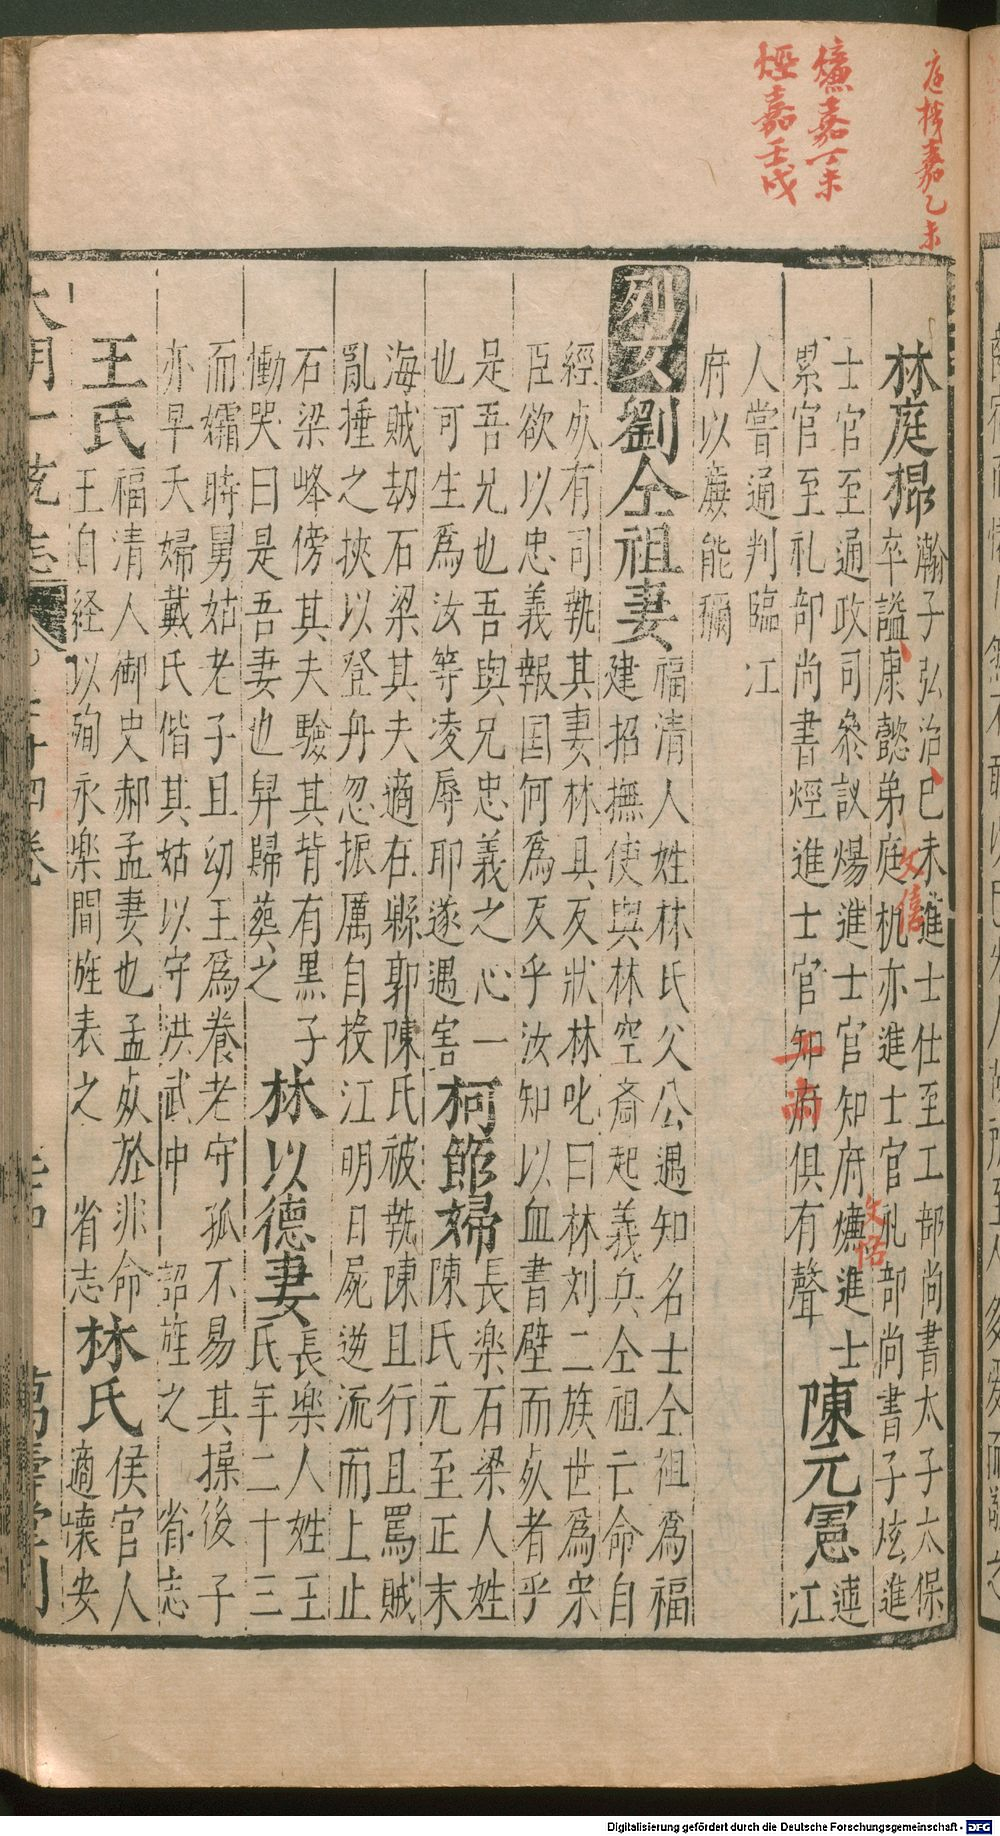 庭機嘉乙未
燫嘉丁未
烴嘉壬戌
林庭㭿
瀚子弘治己未進士仕至工部尚書太子太保
卒謚康懿弟庭机亦進士官礼部尚書子炫進
士官至通政司叅議煬進士官知府燫進士
累官至礼部尚書烴進士官知府俱有聲
文僖
文恪
工尚
陳元憲
連
江
人嘗通判臨江
府以廉能稱
烈女
劉仝祖妻
福清人姓林氏父公遇知名士仝祖為福
建招撫使與林空斋起義兵仝祖亡命自
經死有司執其妻林具反狀林叱曰林刘二族世為宋
臣欲以忠義報国何為反乎汝知以血書壁而死者乎
是吾兄也吾與兄忠義之心一
也可生為汝等凌辱耶遂遇害
柯節婦
長楽石梁人姓
陳氏元至正末
海賊劫石梁其夫適在縣郭陳氏被執陳且行且罵賊
亂捶之挾以登舟忽振厲自投江明日屍逆流而上止
石梁峰傍其夫驗其背有黒子
慟哭曰是吾妻也舁歸葬之
林以德妻
長楽人姓王
氏年二十三
而孀時舅姑老子且幼王為養老守孤不易其操後子
亦早夭婦戴氏偕其姑以守洪武中 詔旌之 省志
王氏
福清人御史郝孟妻也孟死於非命
王自経以殉永楽間旌表之 省志
林氏
侯官人
適懐安
大明一統志
七十四卷
萬壽堂刊
Digitalisierung gefördert durch die Deutsche Forschungsgemeinschaft - DFG